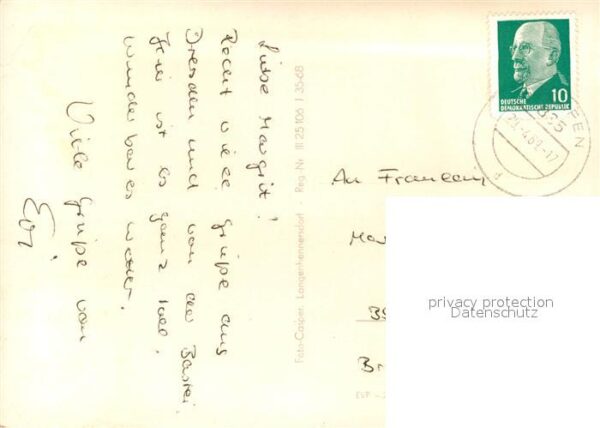 Liebe Margrit!
Recht viele Grüße aus
Dresden und von der Bastei.
Hier ist es ganz toll.
Wunderbares Wetter.
Viele Grüße von
Evi
Foto-Casper, Langenhennersdorf Reg.-Nr. III 25 106 I 35-68
10
DEUTSCHE
DEMOKRATISCHE REPUBLIK
29.4.69.-17
d
An Fräulein
Mar
Br
privacy protection
Datenschutz